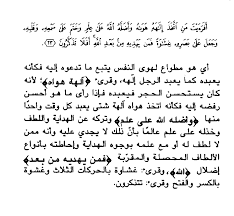 أفرءيت من اتخذ إلهه هوىه وأضله الله على علم وختم على سمعه وقلبه
وجعل على بصره غشاوة فمن يهديه من بعد الله أفلا تذكرون (٢٣)
أي هو مطواع لهوى النفس يتبع ما تدعوه إليه فكأنه
يعبده كما يعبد الرجل إلهه، وقرىء ﴿آلهة هواه﴾ لأنه
كان يستحسن الحجر فيعبده فإذا رأى ما هو أحسن
رفضه إليه فكأنه اتخذ هواه آلهة شتى يعبد كل وقت واحدًا
منها ﴿وأضله الله على علم﴾ وتركه عن الهداية واللطف
وخذله على علم عالمًا بأن ذلك لا يجدي عليه وأنه ممن
لا لطف له أو مع علمه بوجوه الهداية وإحاطته بأنواع
الألطاف المحصلة والمقربة ﴿فمن يهديه من بعد﴾
إضلال ﴿الله﴾ وقرىء غشاوة بالحركات الثلاث وغشوة
بالكسر والفتح وقرىء تتذكرون.